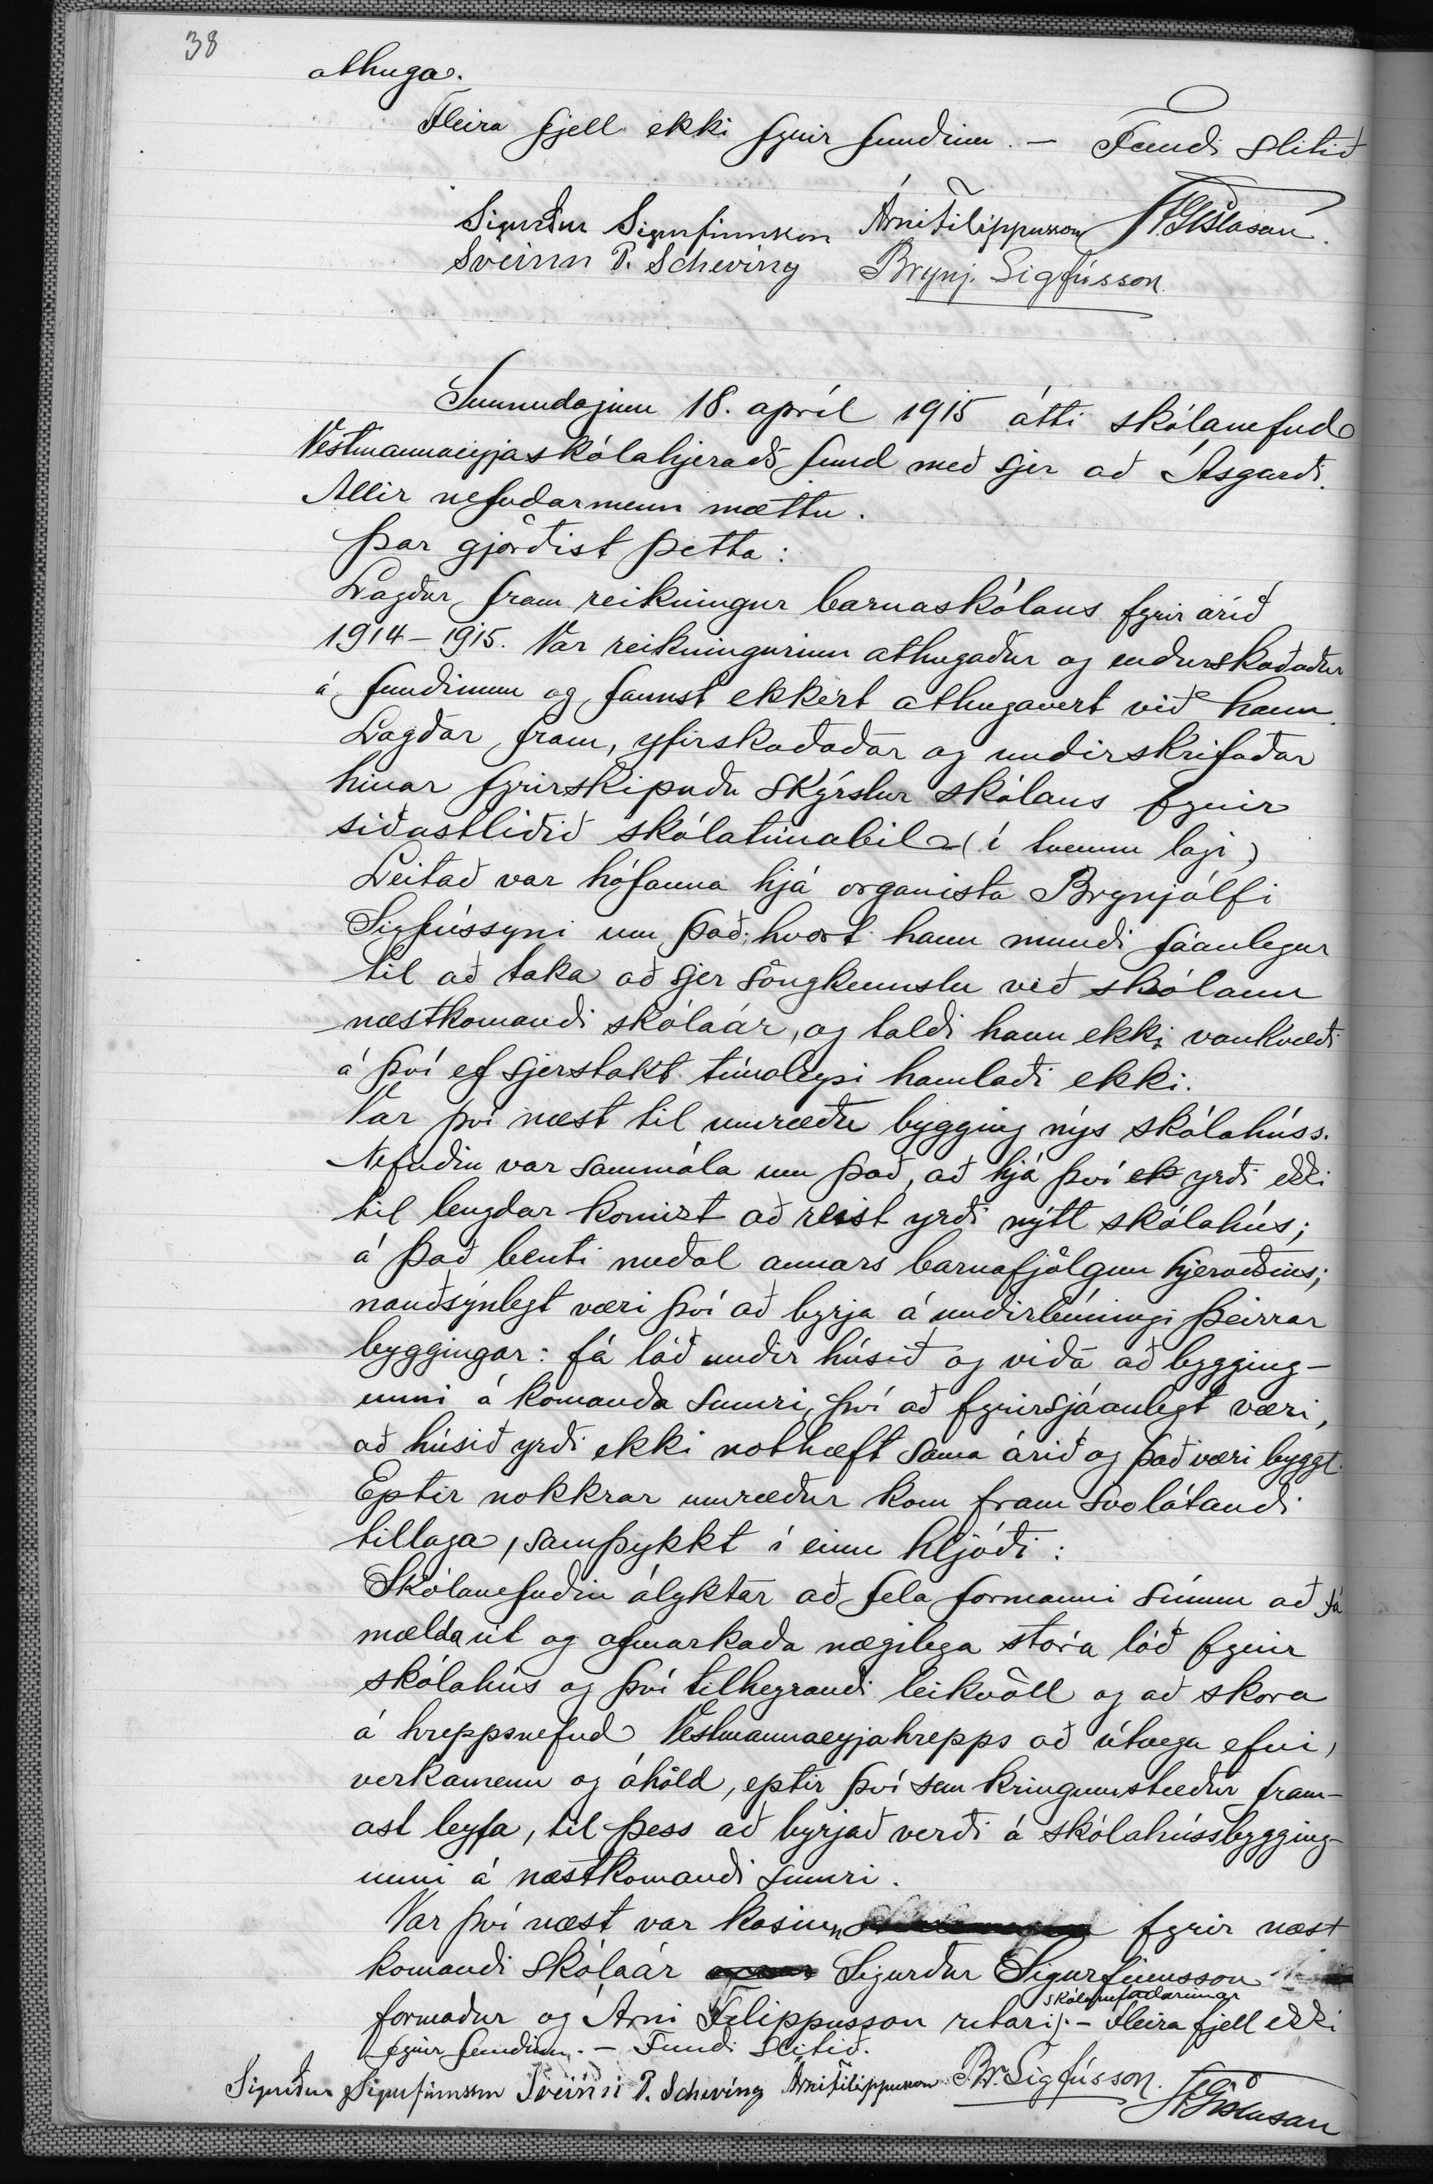 38
athuga.
Fleira fjell ekki fyrir fundinn. — Fundi slitið
Sigurður Sigurfinnsson Árni Filippusson St Gíslason.
Sveinn P. Scheving Brynj. Sigfússon.
Sunnudaginn 18. apríl 1915 átti skólanefnd
Vestmannaeyjaskólahjeraðs fund með sjer að Ásgarði.
Allir nefndarmenn mættu.
Þar gjörðist þetta:
Lagður fram reikningur barnaskólans fyrir árið
1914–1915. Var reikningurinn athugaður og endurskoðaður
á fundinum og fannst ekkert athugavert við hann.
Lagðar fram, yfirskoðaðar og undirskrifaðar
hinar fyrirskipuðu skýrslur skólans fyrir
síðastliðið skólatímabil (í tvennu lagi)
Leitað var hófanna hjá organista Brynjólfi
Sigfússyni um það, hvort hann mundi fáanlegur
til að taka að sjer söngkennslu við skólann
næstkomandi skólaár, og taldi hann ekki vankvæði
á því ef sjerstakt tímaleysi hamlaði ekki.
Var því næst til umræðu bygging nýs skólahúss.
Nefndin var sammála um það, að hjá því yrði ekki
til lengdar komist að reist yrði nýtt skólahús;
á það benti meðal annars barnafjölgun hjeraðsins;
nauðsýnlegt væri því að byrja á undirbúningi þeirrar
byggingar: fá lóð undir húsið og viða að bygging-
unni á komanda sumri, því að fyrirsjáanlegt væri,
að húsið yrði ekki nothæft sama árið og það væri byggt.
Eptir nokkrar umræður kom fram svolátandi
tillaga, samþykkt í einu hljóði:
Skólanefndin ályktar að fela formanni sínum að fá
mælda út og afmarkaða nægilega stóra lóð fyrir
skólahús og því tilheyrandi leikvöll og að skora
á hreppsnefnd Vestmannaeyjahrepps að útvega efni,
verkamenn og áhöld, eptir því sem kringumstæður fram-
ast leyfa, til þess að byrjað verði á skólahússbygging-
unni á næstkomandi sumri.
Var því næst var kosinn fyrir næst
komandi skólaár Sigurður Sigurfinnsson
formaður og Árni Filippusson ritari skólanefndarinnar. – Fleira fjell ekki
fyrir fundinn. – Fundi slitið.
Sigurður Sigurfinnsson Sveinn P. Scheving Árni Filippusson Br. Sigfússon. St Gíslason